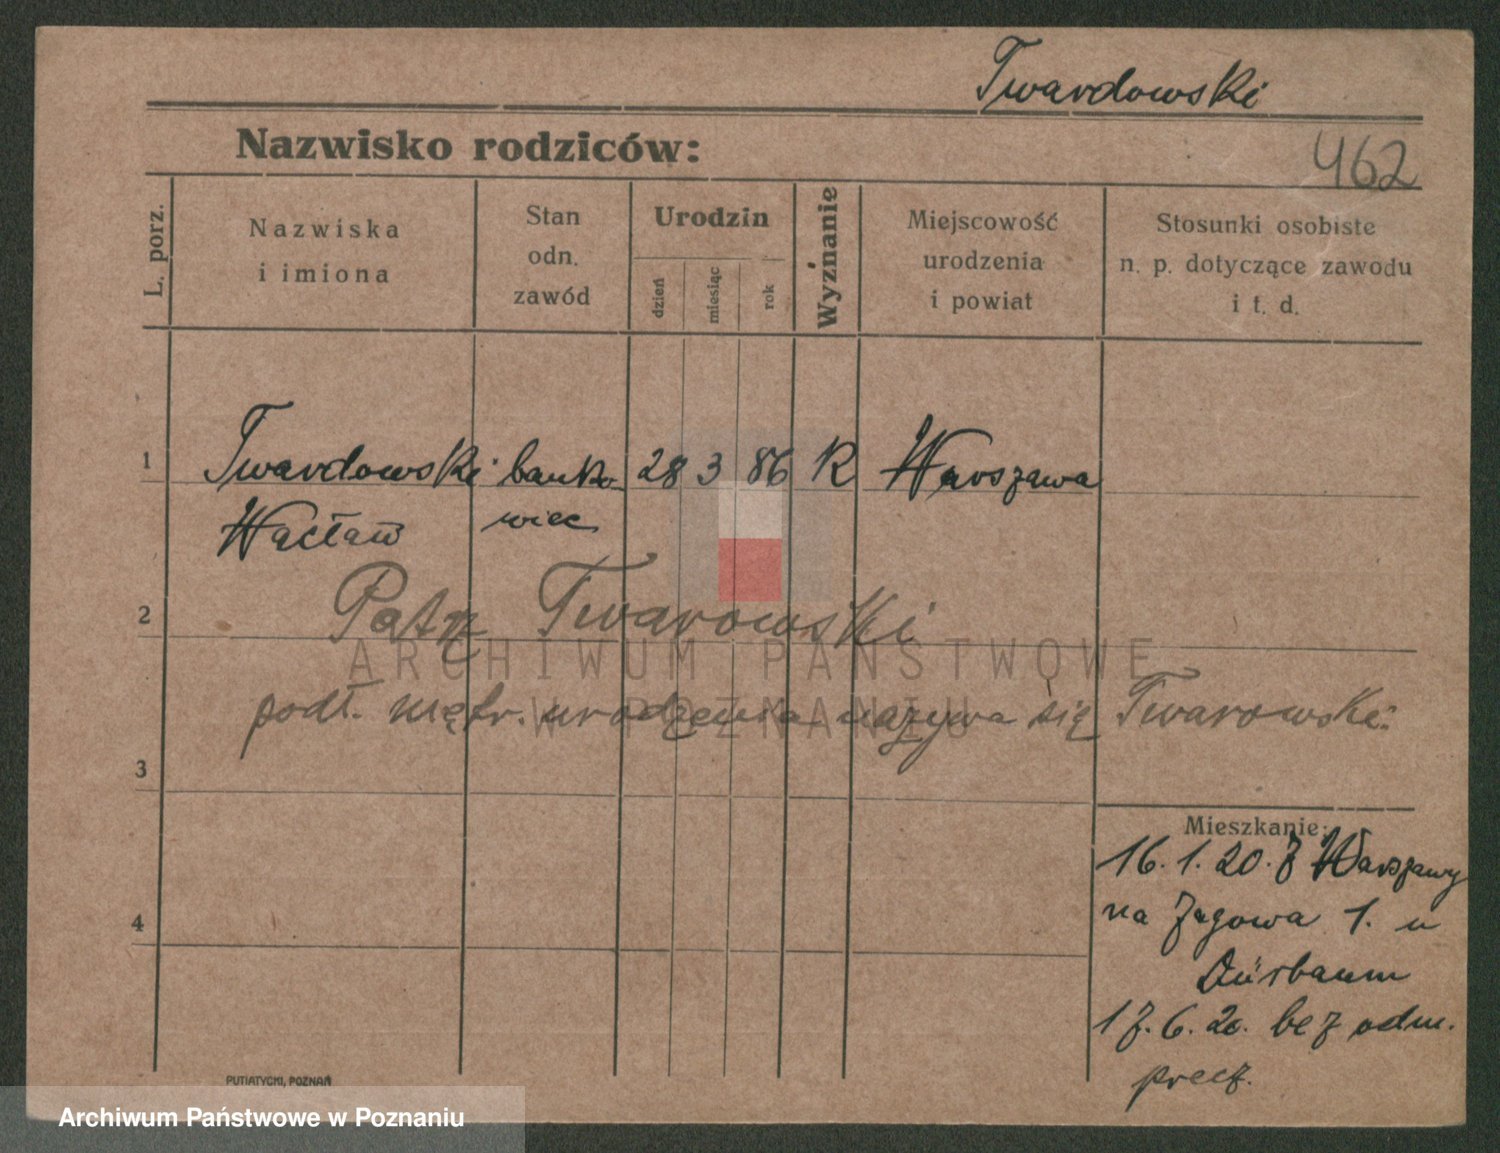 Twardowski
Nazwisko rodziców:
462
L. porz.
Nazwiska
i imiona
Stan
odn.
zawód
Urodzin
dzień
miesiąc
rok
Wyznanie
Miejscowość
urodzenia
i powiat
Stosunki osobiste
n. p. dotyczące zawodu
i t. d.
1 Twardowski banko- 28 3 86 R Warszawa
Wacław wiec
2 Patrz Twarowski
ARCHIWUM PAŃSTWOWE
W POZNANIU
podł. metr. urodzenia nazywa się Twarowski
3
Mieszkanie:
16. 1. 20. Z Warszawy
na Jagowa 1. u
Dürbaum
17. 6. 20. bez odm.
precz.
4
PUTIATYCKI, POZNAŃ
Archiwum Państwowe w Poznaniu